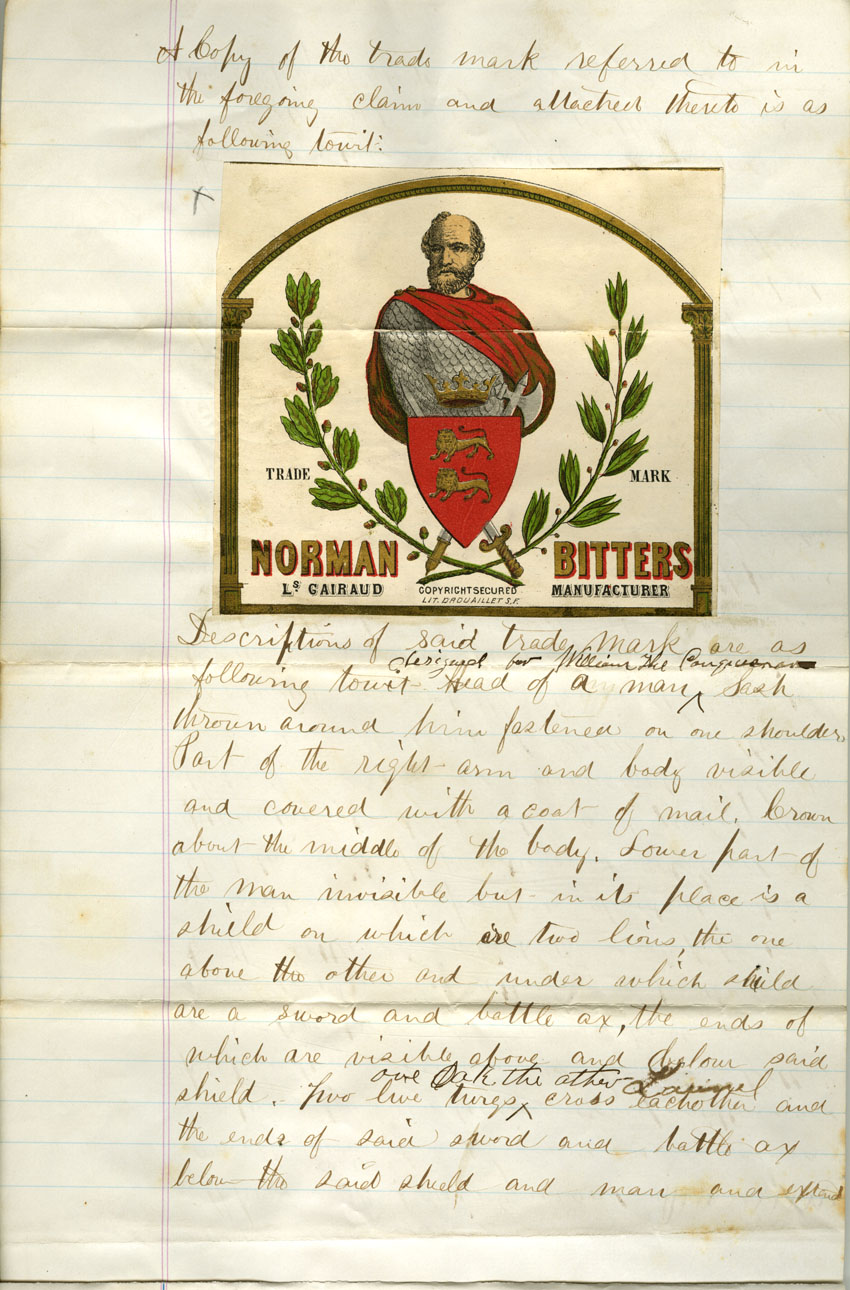 A Copy of the trade mark referred to in
the foregoing claim and attached thereto is as
following towit:
x
TRADE MARK
NORMAN BITTERS
Ls. GAIRAUD COPYRIGHT SECURED MANUFACTURER
LIT. DROUAILLET S.F.
Descriptions of said trade mark are as
designed for William The Conqueror
following towit Head of a man ^ Sash
thrown around him fastened on one shoulder.
Part of the right arm and body visible
and covered with a coat of mail. Crown
about the middle of the body. Lower part of
the man invisible but in its place is a
shield on which are two lions, the one
above the other and under which shield
are a sword and battle ax, the ends of
which are visible above and below said
one Oak the other Laurel
shield. Two live twigs ^ cross eachother and
the ends of said sword and battle ax
below the said shield and man and extend